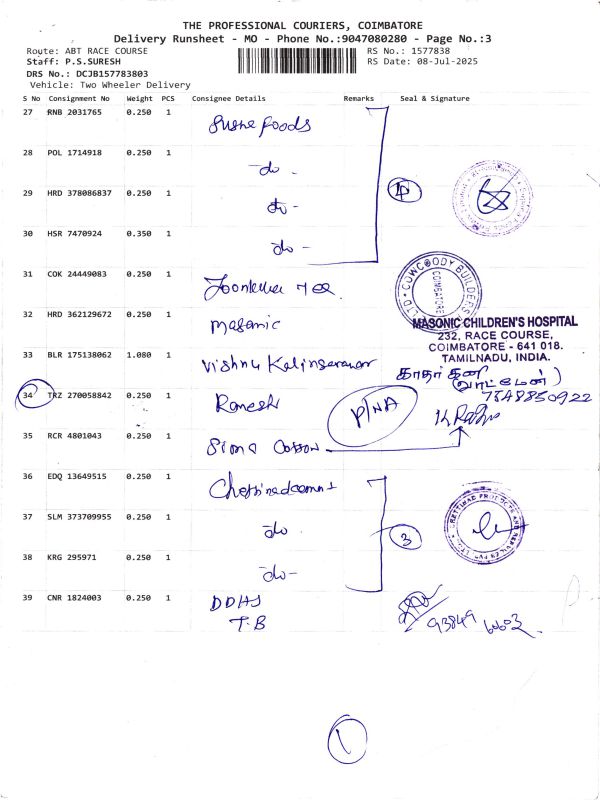 THE PROFESSIONAL COURIERS, COIMBATORE
Delivery Runsheet - MO - Phone No.:9047080280 - Page No.:3
Route: ABT RACE COURSE
RS No.: 1577838
Staff: P.S.SURESH
RS Date: 08-Jul-2025
DRS No.: DCJB157783803
Vehicle: Two Wheeler Delivery
S No Consignment No Weight PCS Consignee Details Remarks Seal & Signature
27 RNB 2031765 0.250 1 foods
28 POL 1714918 0.250 1 -do-
29 HRD 378086837 0.250 1 -do-
30 HSR 7470924 0.350 1 -do-
31 COK 24449083 0.250 1
COWCOODY BUILDERS
LTD
COIMBATORE
32 HRD 362129672 0.250 1 Masonic
MASONIC CHILDREN'S HOSPITAL
232, RACE COURSE,
COIMBATORE - 641 018.
TAMILNADU, INDIA.
33 BLR 175138062 1.080 1 Vishnu
(வாட்மேன்)
7548850922
34 TRZ 270058842 0.250 1 Ramesh P/NA
35 RCR 4801043 0.250 1 Sima Cotton
36 EDQ 13649515 0.250 1
37 SLM 373709955 0.250 1 do
3
38 KRG 295971 0.250 1 -do-
39 CNR 1824003 0.250 1 DDHS
T.B
93849
60603
1